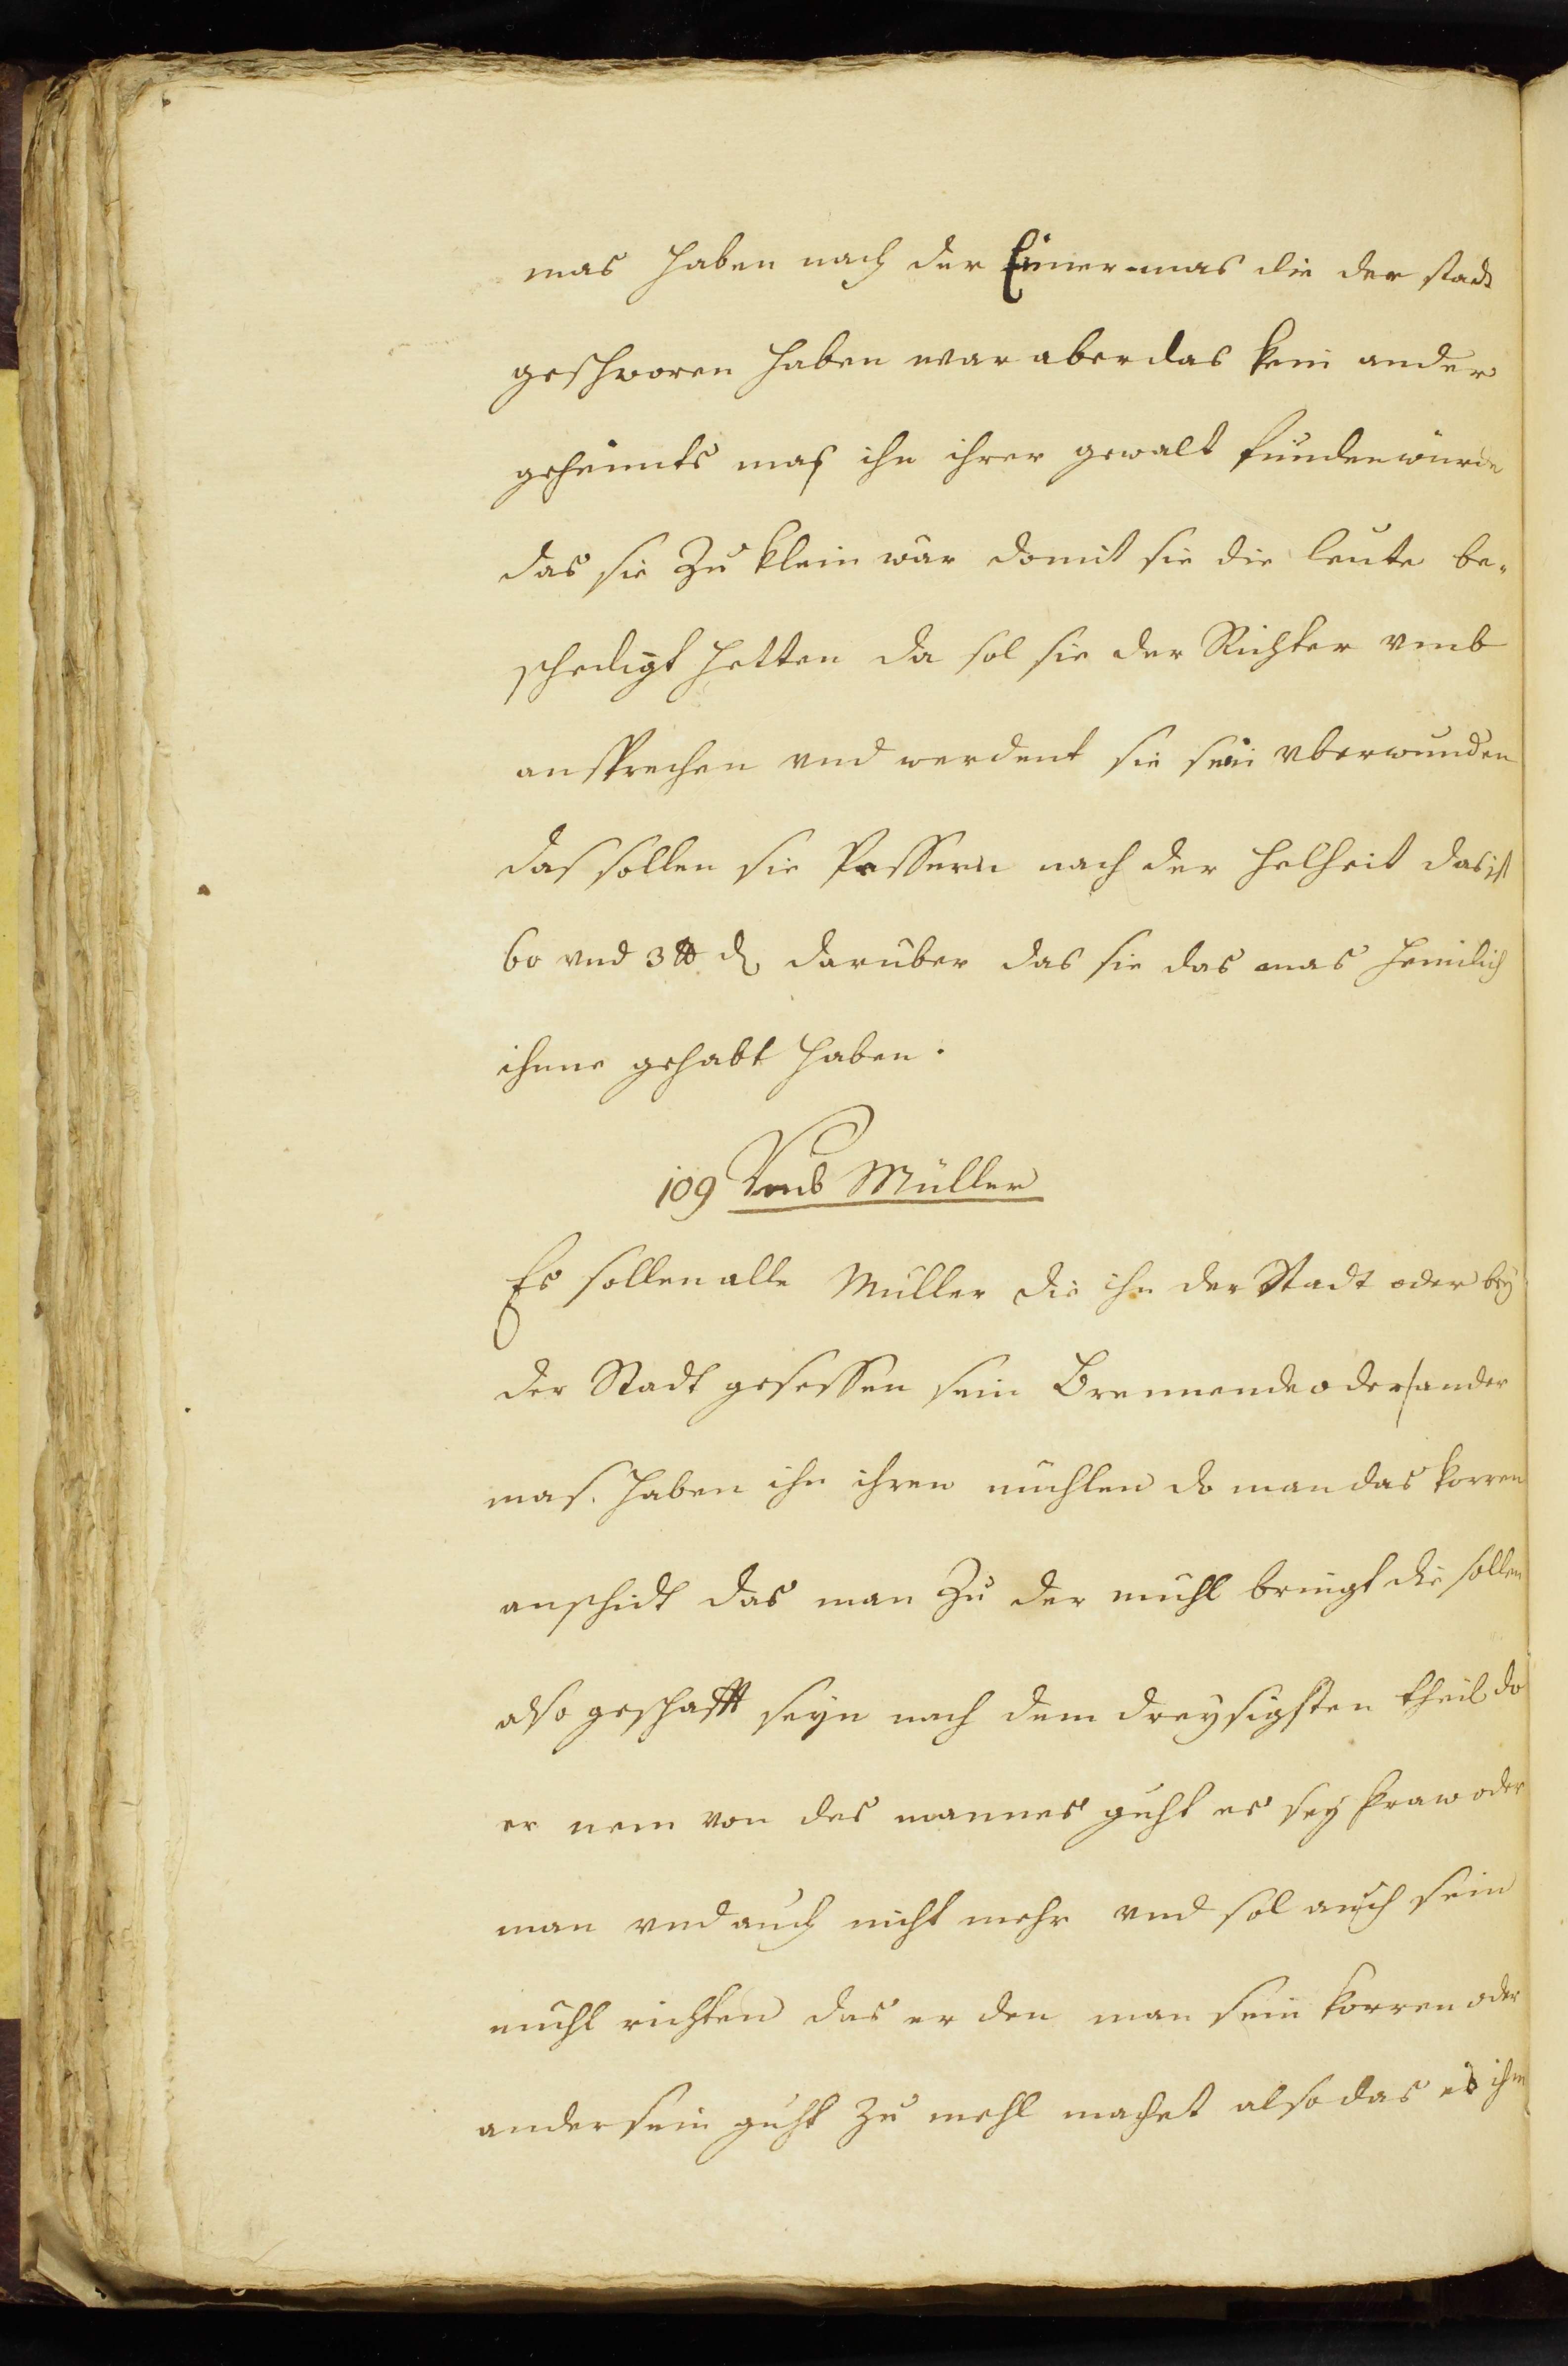 mas haben nach der Eimermas die der stadt
geschworen haben war aber das kein ander
geheimts mas ihn ihrer gewalt funden wurde
das sie Zu klein wär domit sie die leute be„
schedigt hetten da sol sie der Richter vmb
ansprechen vnd werdent sie sein vberwunden
das sollen sie Pessern nach der helheit das ist
60 vnd 3 ℔ ₰ daruber das sie das mas heimlich
ihnne gehabt haben.
109 Vmb Müller
Es sollen alle Müller die ihn der Stadt oder bey
der Stadt gesessen sein Brennende oder ander
mas. haben ihn ihren mühlen do man das korren
anschidt das man Zu der mühl bringt die sollen
also geschafft seyn nach dem dreysigsten theil do
er nem von des mannes guht es sey fraw oder
man vnd auch nicht mehr vnd sol auch sein
mühl richten das er den man sein korren oder
ander sein guht Zu mehl machet also das es ihm